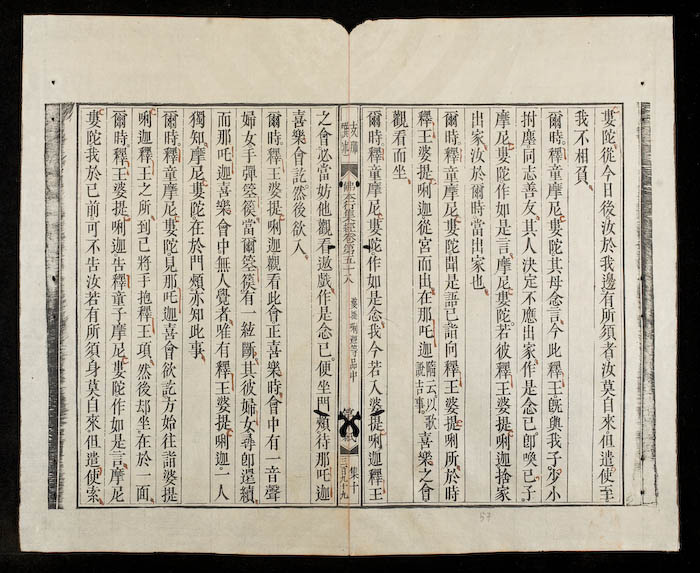 婁陀從今日後汝於我邊有所須者汝莫自來但遣使至
我不相負
爾時釋童摩尼婁陀其母念言今此釋王旣與我子少小
拊塵同志善友其人決定不應出家作是念已卽喚己子
摩尼婁陀作如是言摩尼婁陀若彼釋王婆提唎迦捨家
出家汝於爾時當出家也
爾時釋童摩尼婁陀聞是語已詣向釋王婆提唎所於時
釋王婆提唎迦從宮而出在那吒迦隋云以歌說吉事喜樂之會
觀看而坐
爾時釋童摩尼婁陀作如是念我今若入婆提唎迦釋王
支那撰述
佛本行集經卷第五十八
婆提唎迦等品中
集十
二百九十九
之會必當妨他觀看遨戲作是念已便坐門頰待那吒迦
喜樂會訖然後欲入
爾時釋王婆提唎迦觀看此會正喜樂時會中有一音聲
婦女手彈箜篌當爾箜篌有一絃斷其彼婦女尋卽還續
而那吒迦喜樂會中無人覺者唯有釋王婆提唎迦一人
獨知摩尼婁陀在於門頰亦知此事
爾時釋童摩尼婁陀見那吒迦喜會欲訖方始往詣婆提
唎迦釋王之所到已將手抱釋王項然後却坐在於一面
爾時釋王婆提唎迦告釋童子摩尼婁陀作如是言摩尼
婁陀我於已前可不告汝若有所須身莫自來但遣使索
57